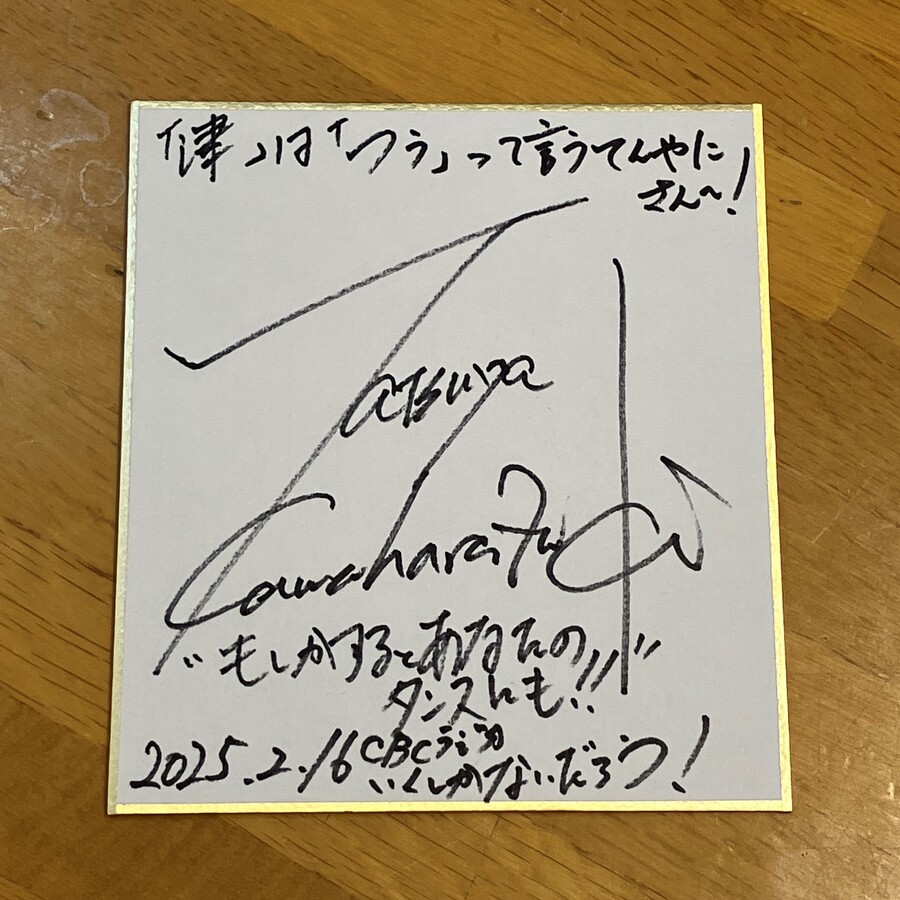 「津」は「つぅ」って言うてんやに
さん〜!
Tatsuya
Kawahara
"もしかするとあなたの
タンスにも!!"
2025.2.16 CBCラジオ
いくしかないだろう!